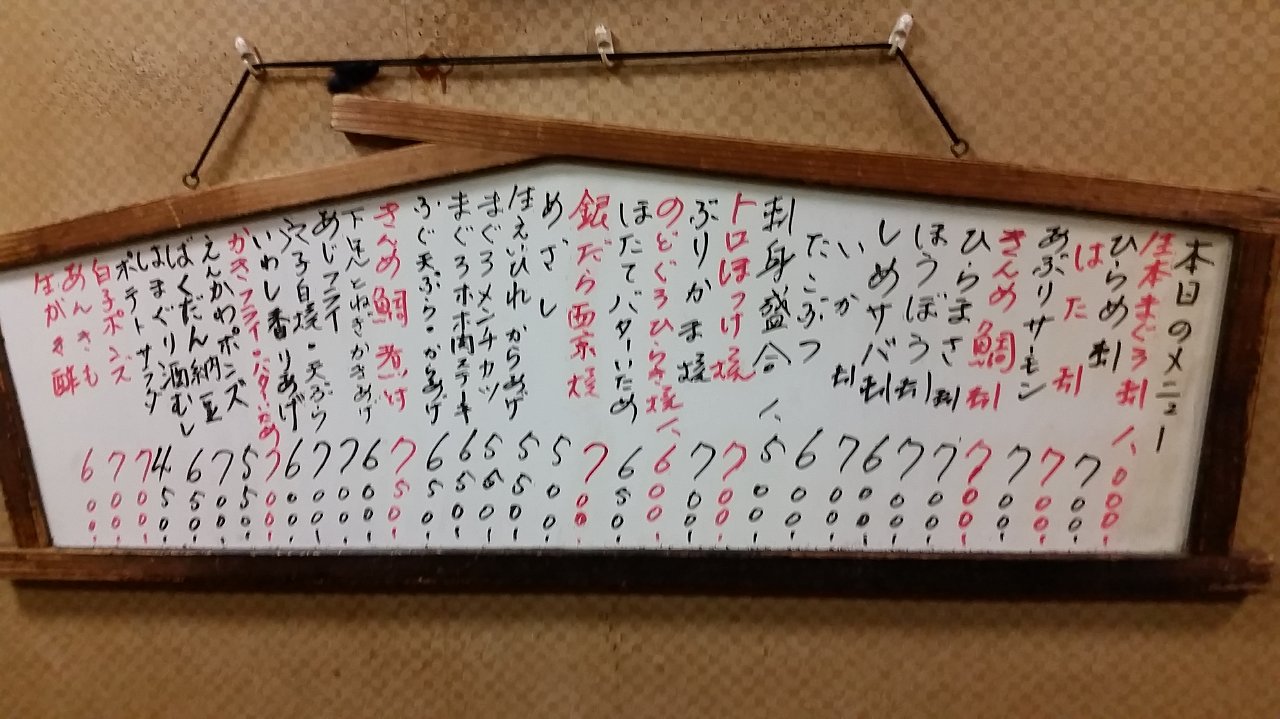 本日のメニュー
生本まぐろ刺 1,000.
ひらめ刺 700.
はた刺 700.
あぶりサーモン 700.
きんめ鯛刺 700.
ひらまさ刺 700.
ほうぼう刺 700.
しめサバ刺 600.
いか刺 700.
たこぶつ 600.
刺身盛合 1,500.
ぶりかま焼 700.
トロほっけ焼 700.
のどぐろひらき焼 1,600
ほたてバターいため 650.
銀だら西京焼 700.
めざし 500.
生えいひれからあげ 550.
まぐろメンチカツ 550.
まぐろホホ肉ステーキ 650.
ふぐ天ぷら・からあげ 650.
きんめ鯛煮つけ 750.
下足とねぎかきあげ 600.
あじフライ 700.
穴子白焼・天ぷら 700.
いわし香りあげ 600.
かきフライ・バターいため 700.
えんがわポンズ 550.
ばくだん納豆 700.
はまぐり酒むし 650.
ポテトサラダ 450.
白子ポンズ 700.
あんきも 700.
生がき酢 600.